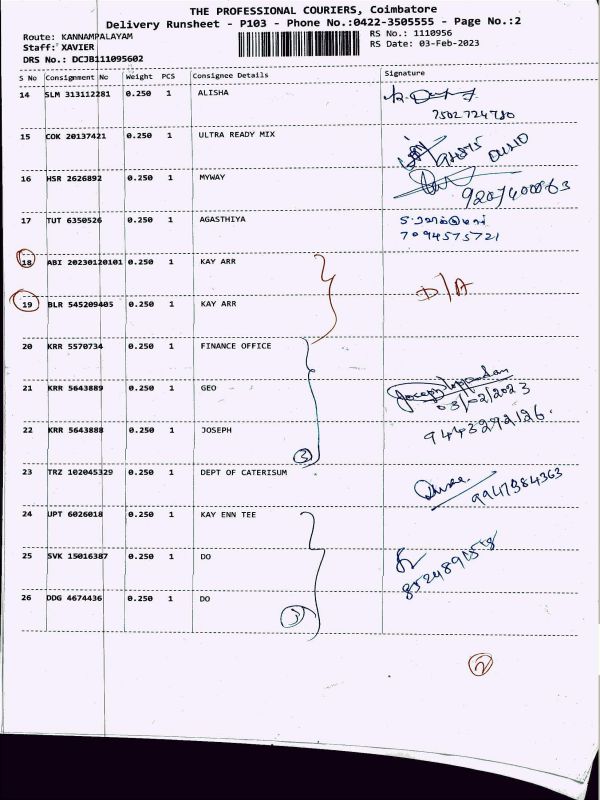 THE PROFESSIONAL COURIERS, Coimbatore
Delivery Runsheet - P103 - Phone No.:0422-3505555 - Page No.:2
Route: KANNAMPALAYAM
RS No.: 1110956
Staff: XAVIER
RS Date: 03-Feb-2023
DRS No.: DCJB111095602
S No Consignment No Weight PCS Consignee Details Signature
14 SLM 313112281 0.250 1 ALISHA
7502724780
15 COK 20137421 0.250 1 ULTRA READY MIX
16 HSR 2626892 0.250 1 MYWAY
9207400063
17 TUT 6350526 0.250 1 AGASTHIYA
7094575721
18 ABI 20230120101 0.250 1 KAY ARR
D/A
19 BLR 545209405 0.250 1 KAY ARR
20 KRR 5570734 0.250 1 FINANCE OFFICE
21 KRR 5643889 0.250 1 GEO
03/02/2023
22 KRR 5643888 0.250 1 JOSEPH
9443292126.
3
23 TRZ 102045329 0.250 1 DEPT OF CATERISUM
9947384363
24 UPT 6026018 0.250 1 KAY ENN TEE
25 SVK 15016387 0.250 1 DO
26 DDG 4674436 0.250 1 DO
3
2